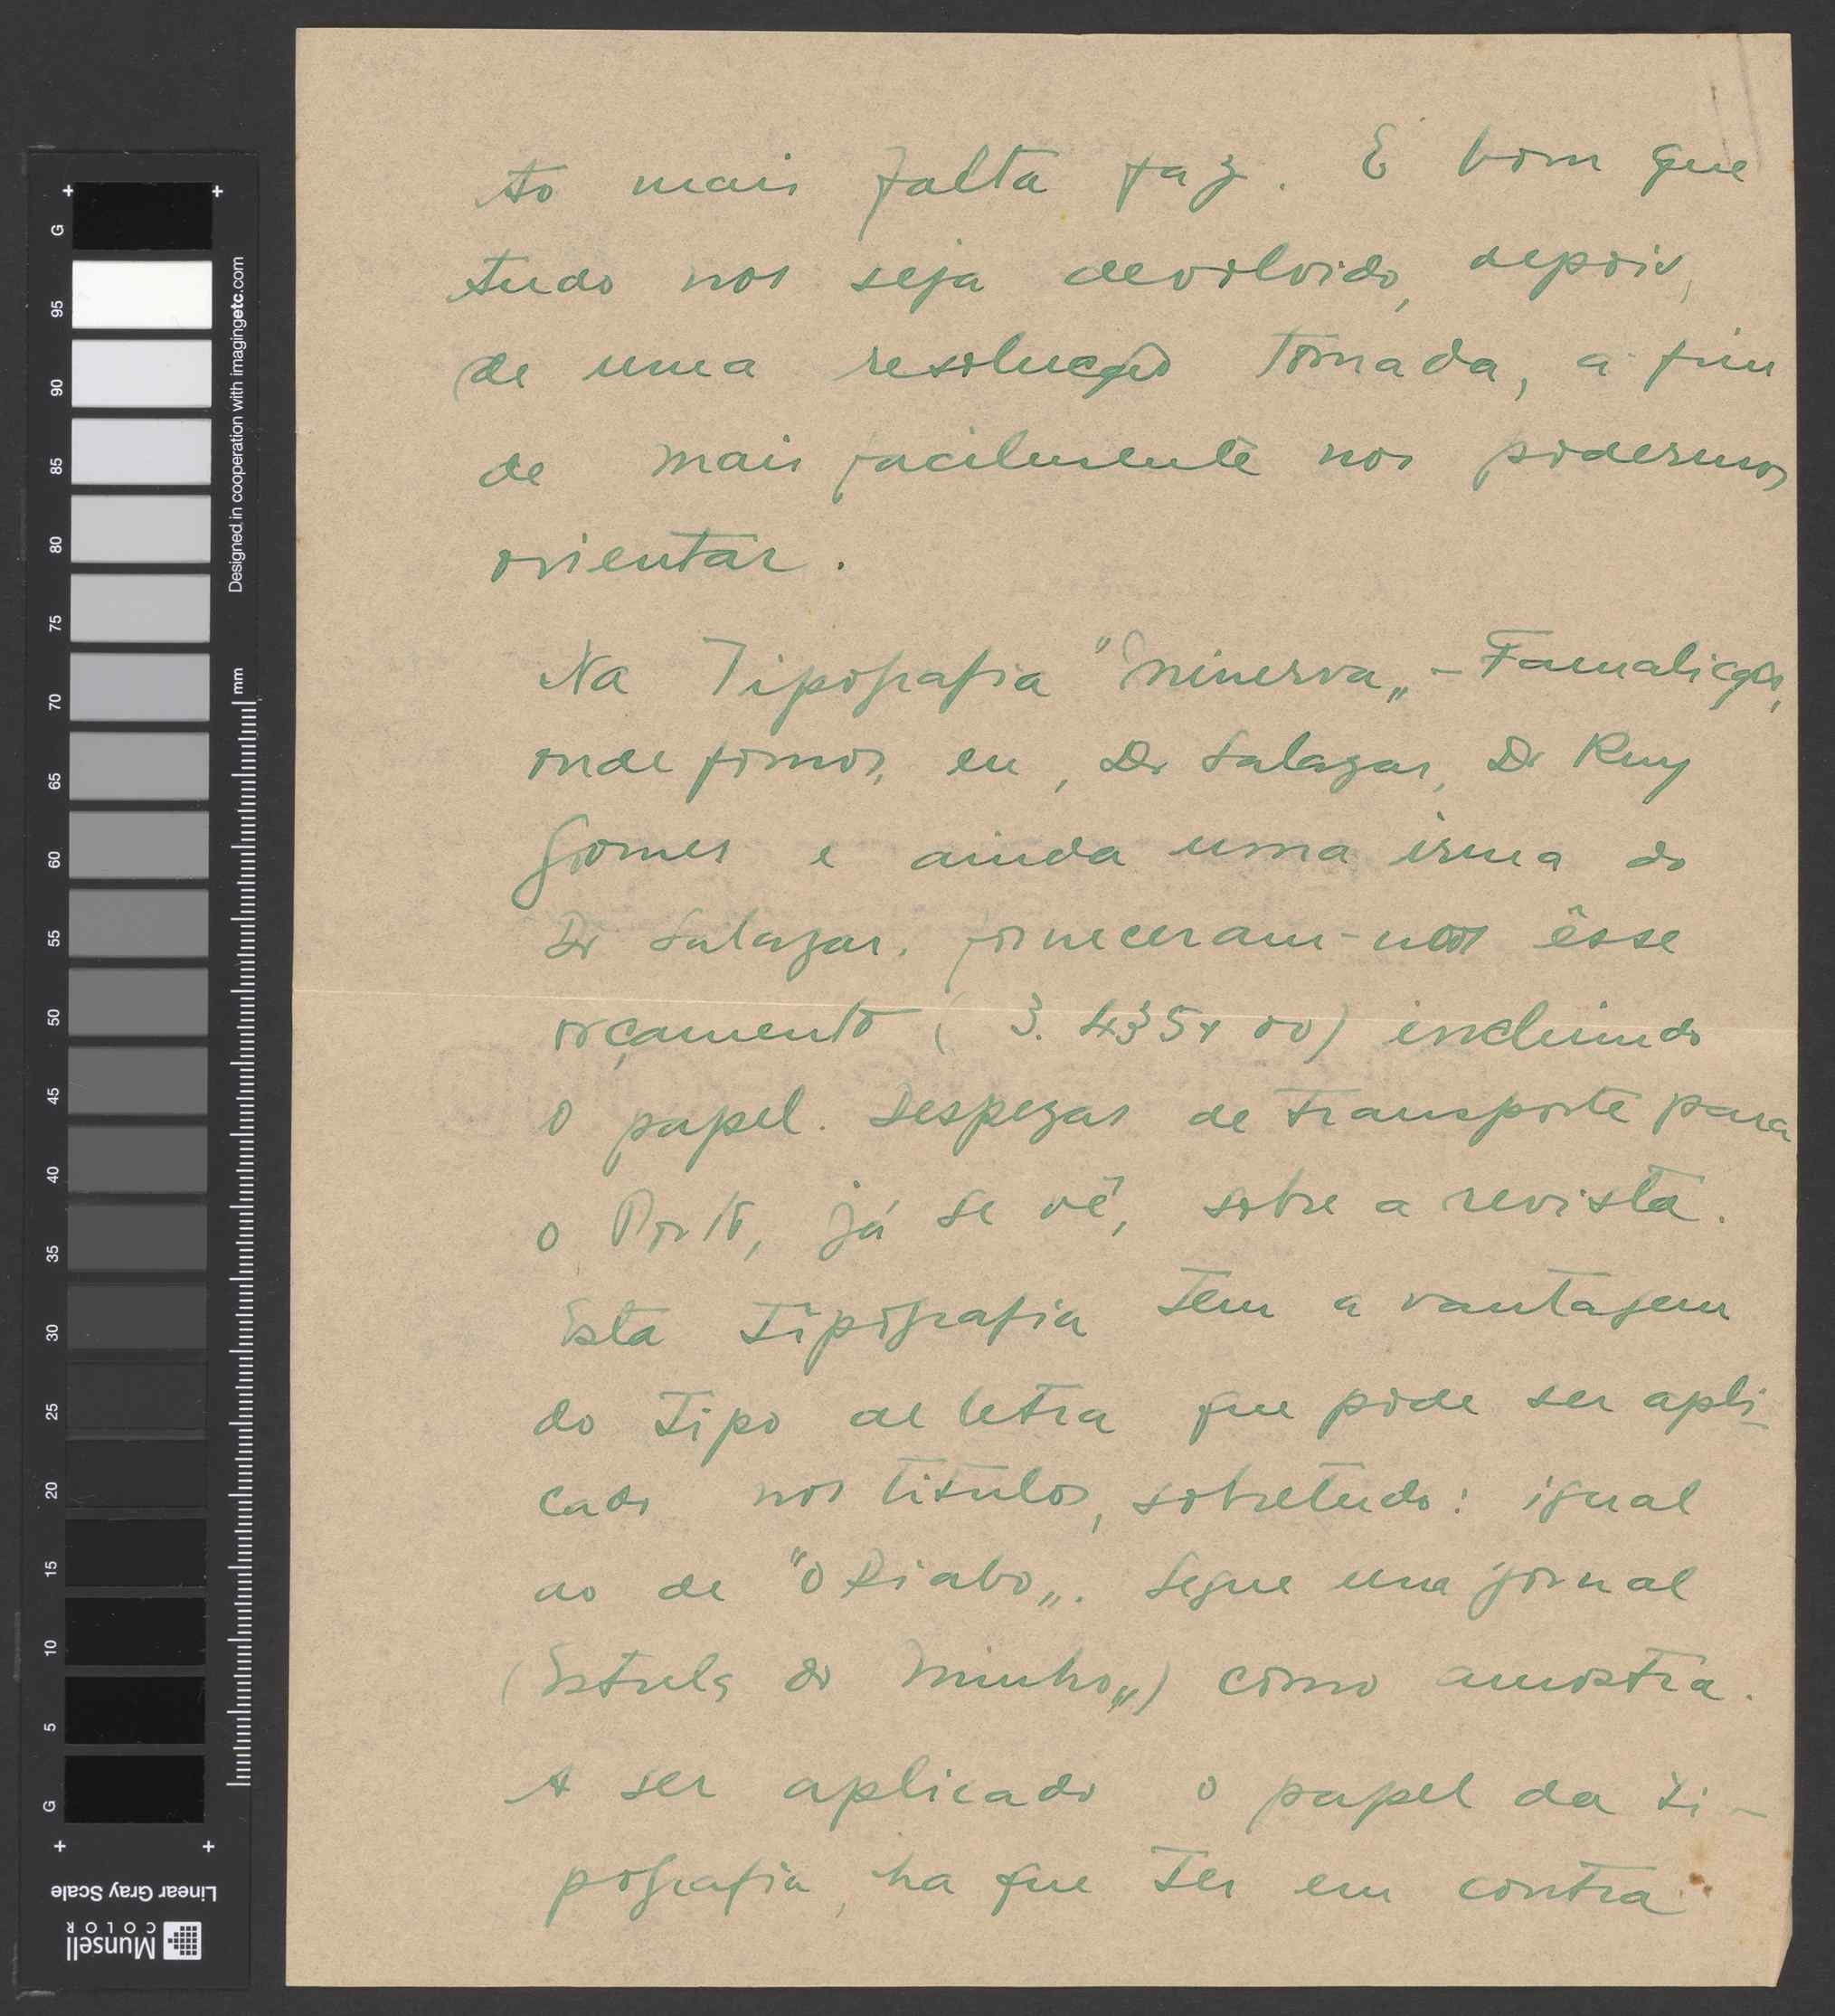 to mais falta faz. É bom que
tudo nos seja devolvido, depois,
de uma resolução tomada, a fim
de mais facilmente nos podermos
orientar.
Na Tipografia "Minerva„ - Famalicão,
onde fomos, eu, Dr Salazar, Dr Ruy
Gomes e ainda uma irma do
Dr Salazar, forneceram-nos êsse
orçamento (3.435$00) incluindo
o papel. Despezas de transporte para
o Porto, já se vê, sobre a revista.
Esta tipografia tem a vantagem
do tipo de letra que pode ser apli-
cado nos titulos, sobretudo: igual
ao de "O Diabo„. Segue um jornal
(Estrela do Minho„) como amostra.
A ser aplicado o papel da ti-
pografia, ha que ter em contra
G
95
90
85
80
75
70
65
60
55
50
45
40
35
30
25
20
15
10
5
G
Designed in cooperation with imagingetc.com
mm
Linear Gray Scale
Munsell
COLOR